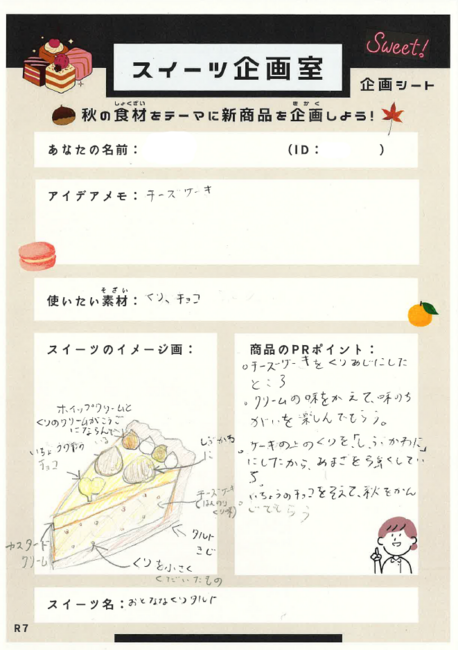 Sweet!
スイーツ企画室
企画シート
しょくざい きかく
秋の食材をテーマに新商品を企画しよう!
あなたの名前: (ID: )
アイデアメモ: チーズケーキ
そざい
使いたい素材: くり、チョコ
スイーツのイメージ画:
ホイップクリームと
くりのクリームがこうご
にならんで
いる
いちょう
チョコ
しぶかわ
チーズケーキ
タルト
きじ
カスタード
クリーム
くりを小さく
くだいたもの
商品のPRポイント:
。チーズケーキをくりあじにした
ところ
。クリームの味をかえて、味のち
がいを楽しんでもらう。
。ケーキの上のくりを「しぶかわに」
にしたから、あまさを
る。
。いちょうのチョコを
じてもらう
スイーツ名:おとななくりタルト
R7